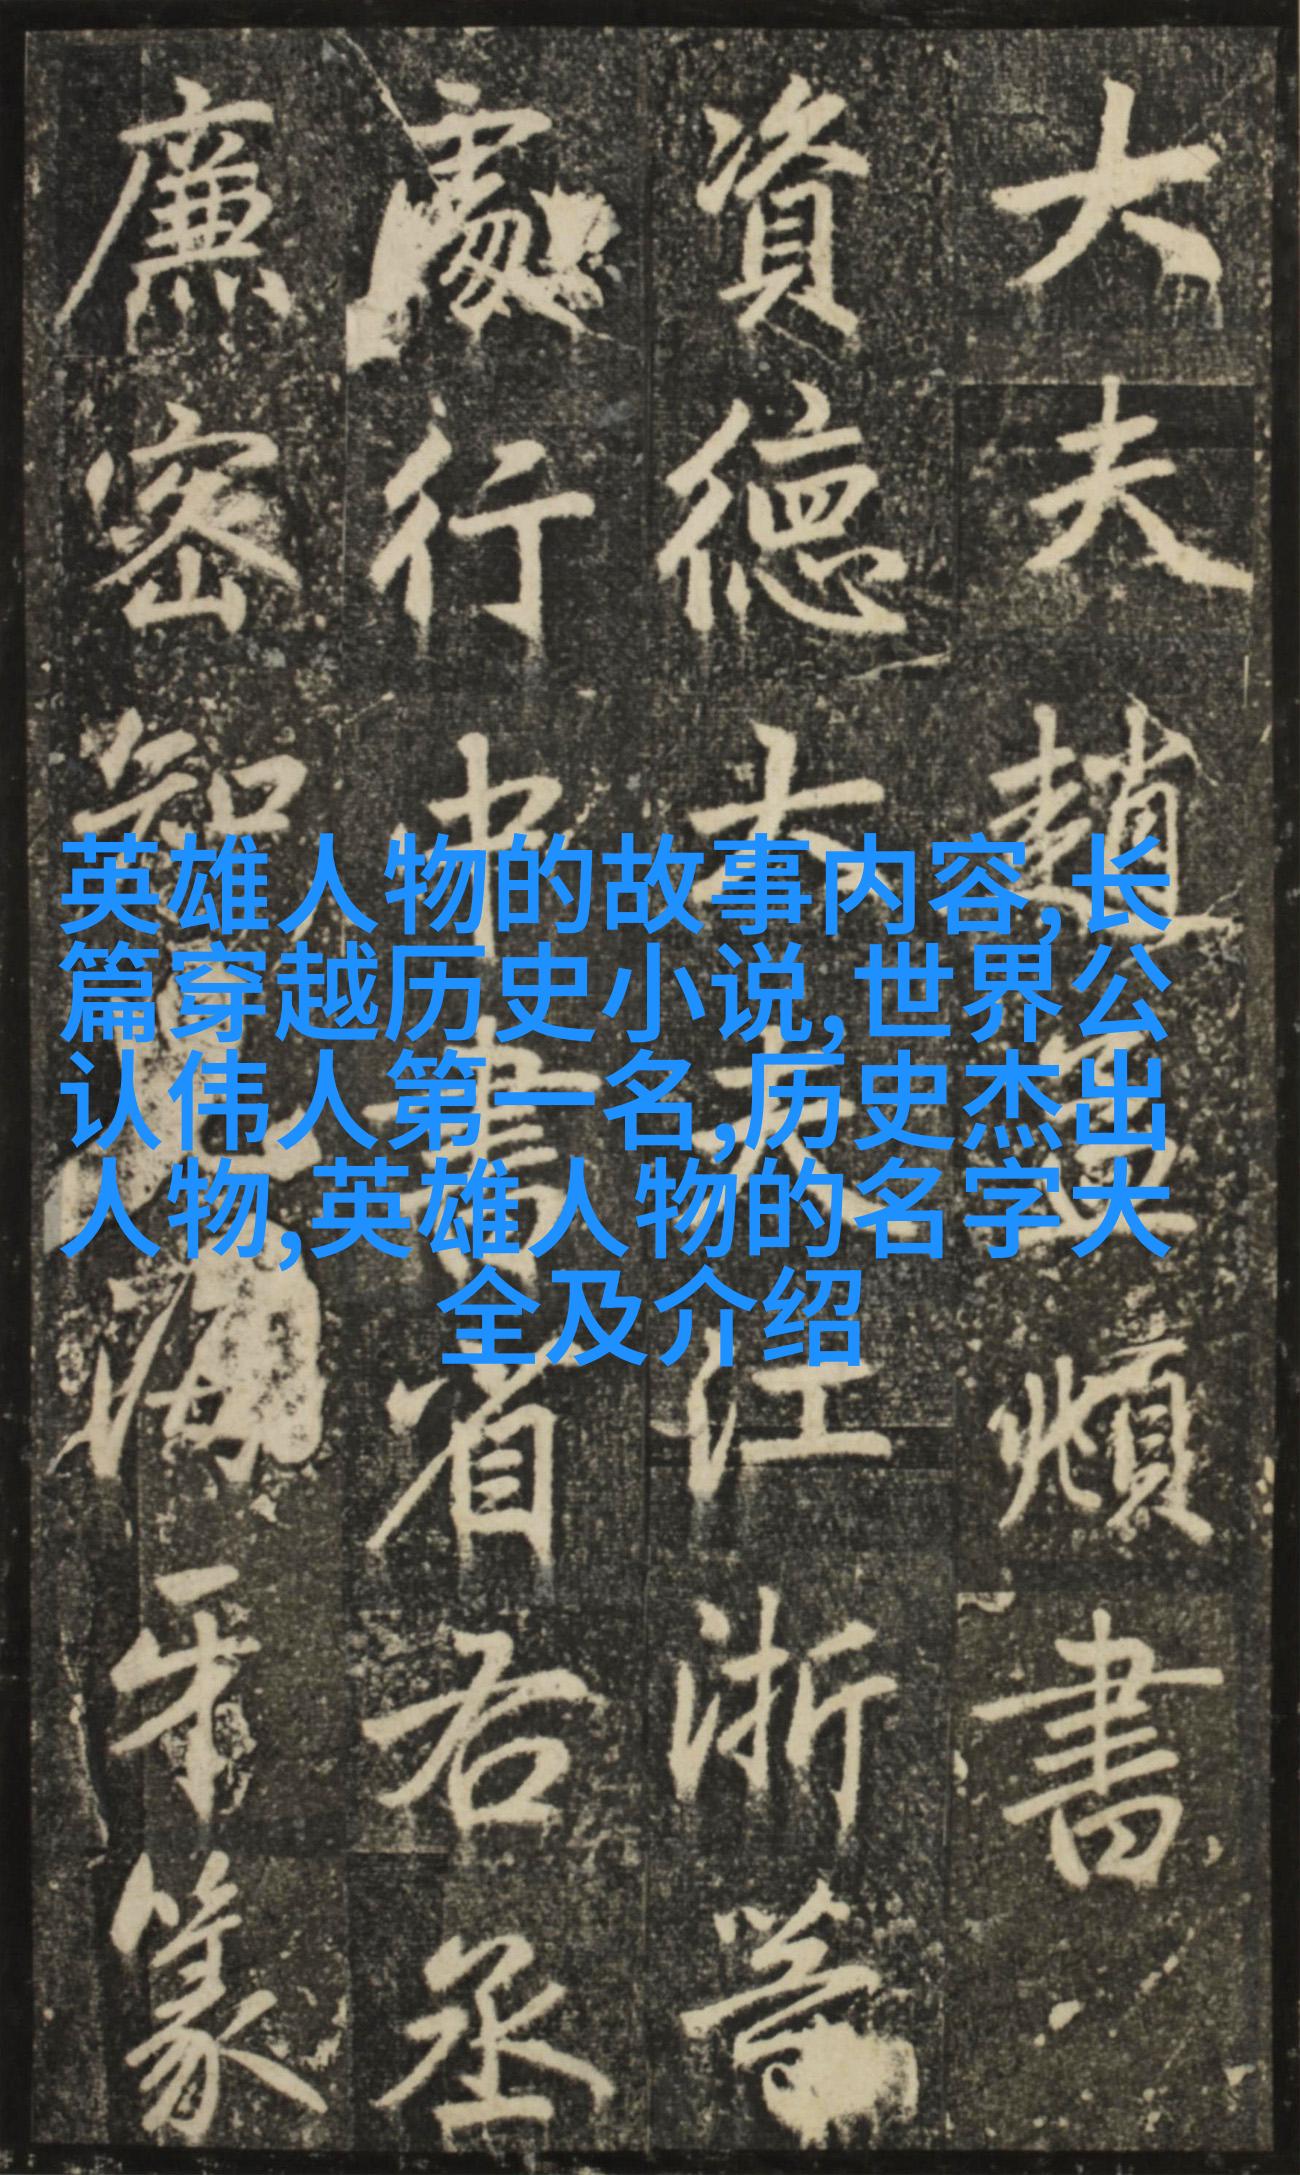 大夫趙宜煩書
資德大夫江浙等
處行中書省右丞
廉密知海牙篆
英雄人物的故事内容,长
篇穿越历史小说,世界公
认伟人第一名,历史杰出
人物,英雄人物的名字大
全及介绍